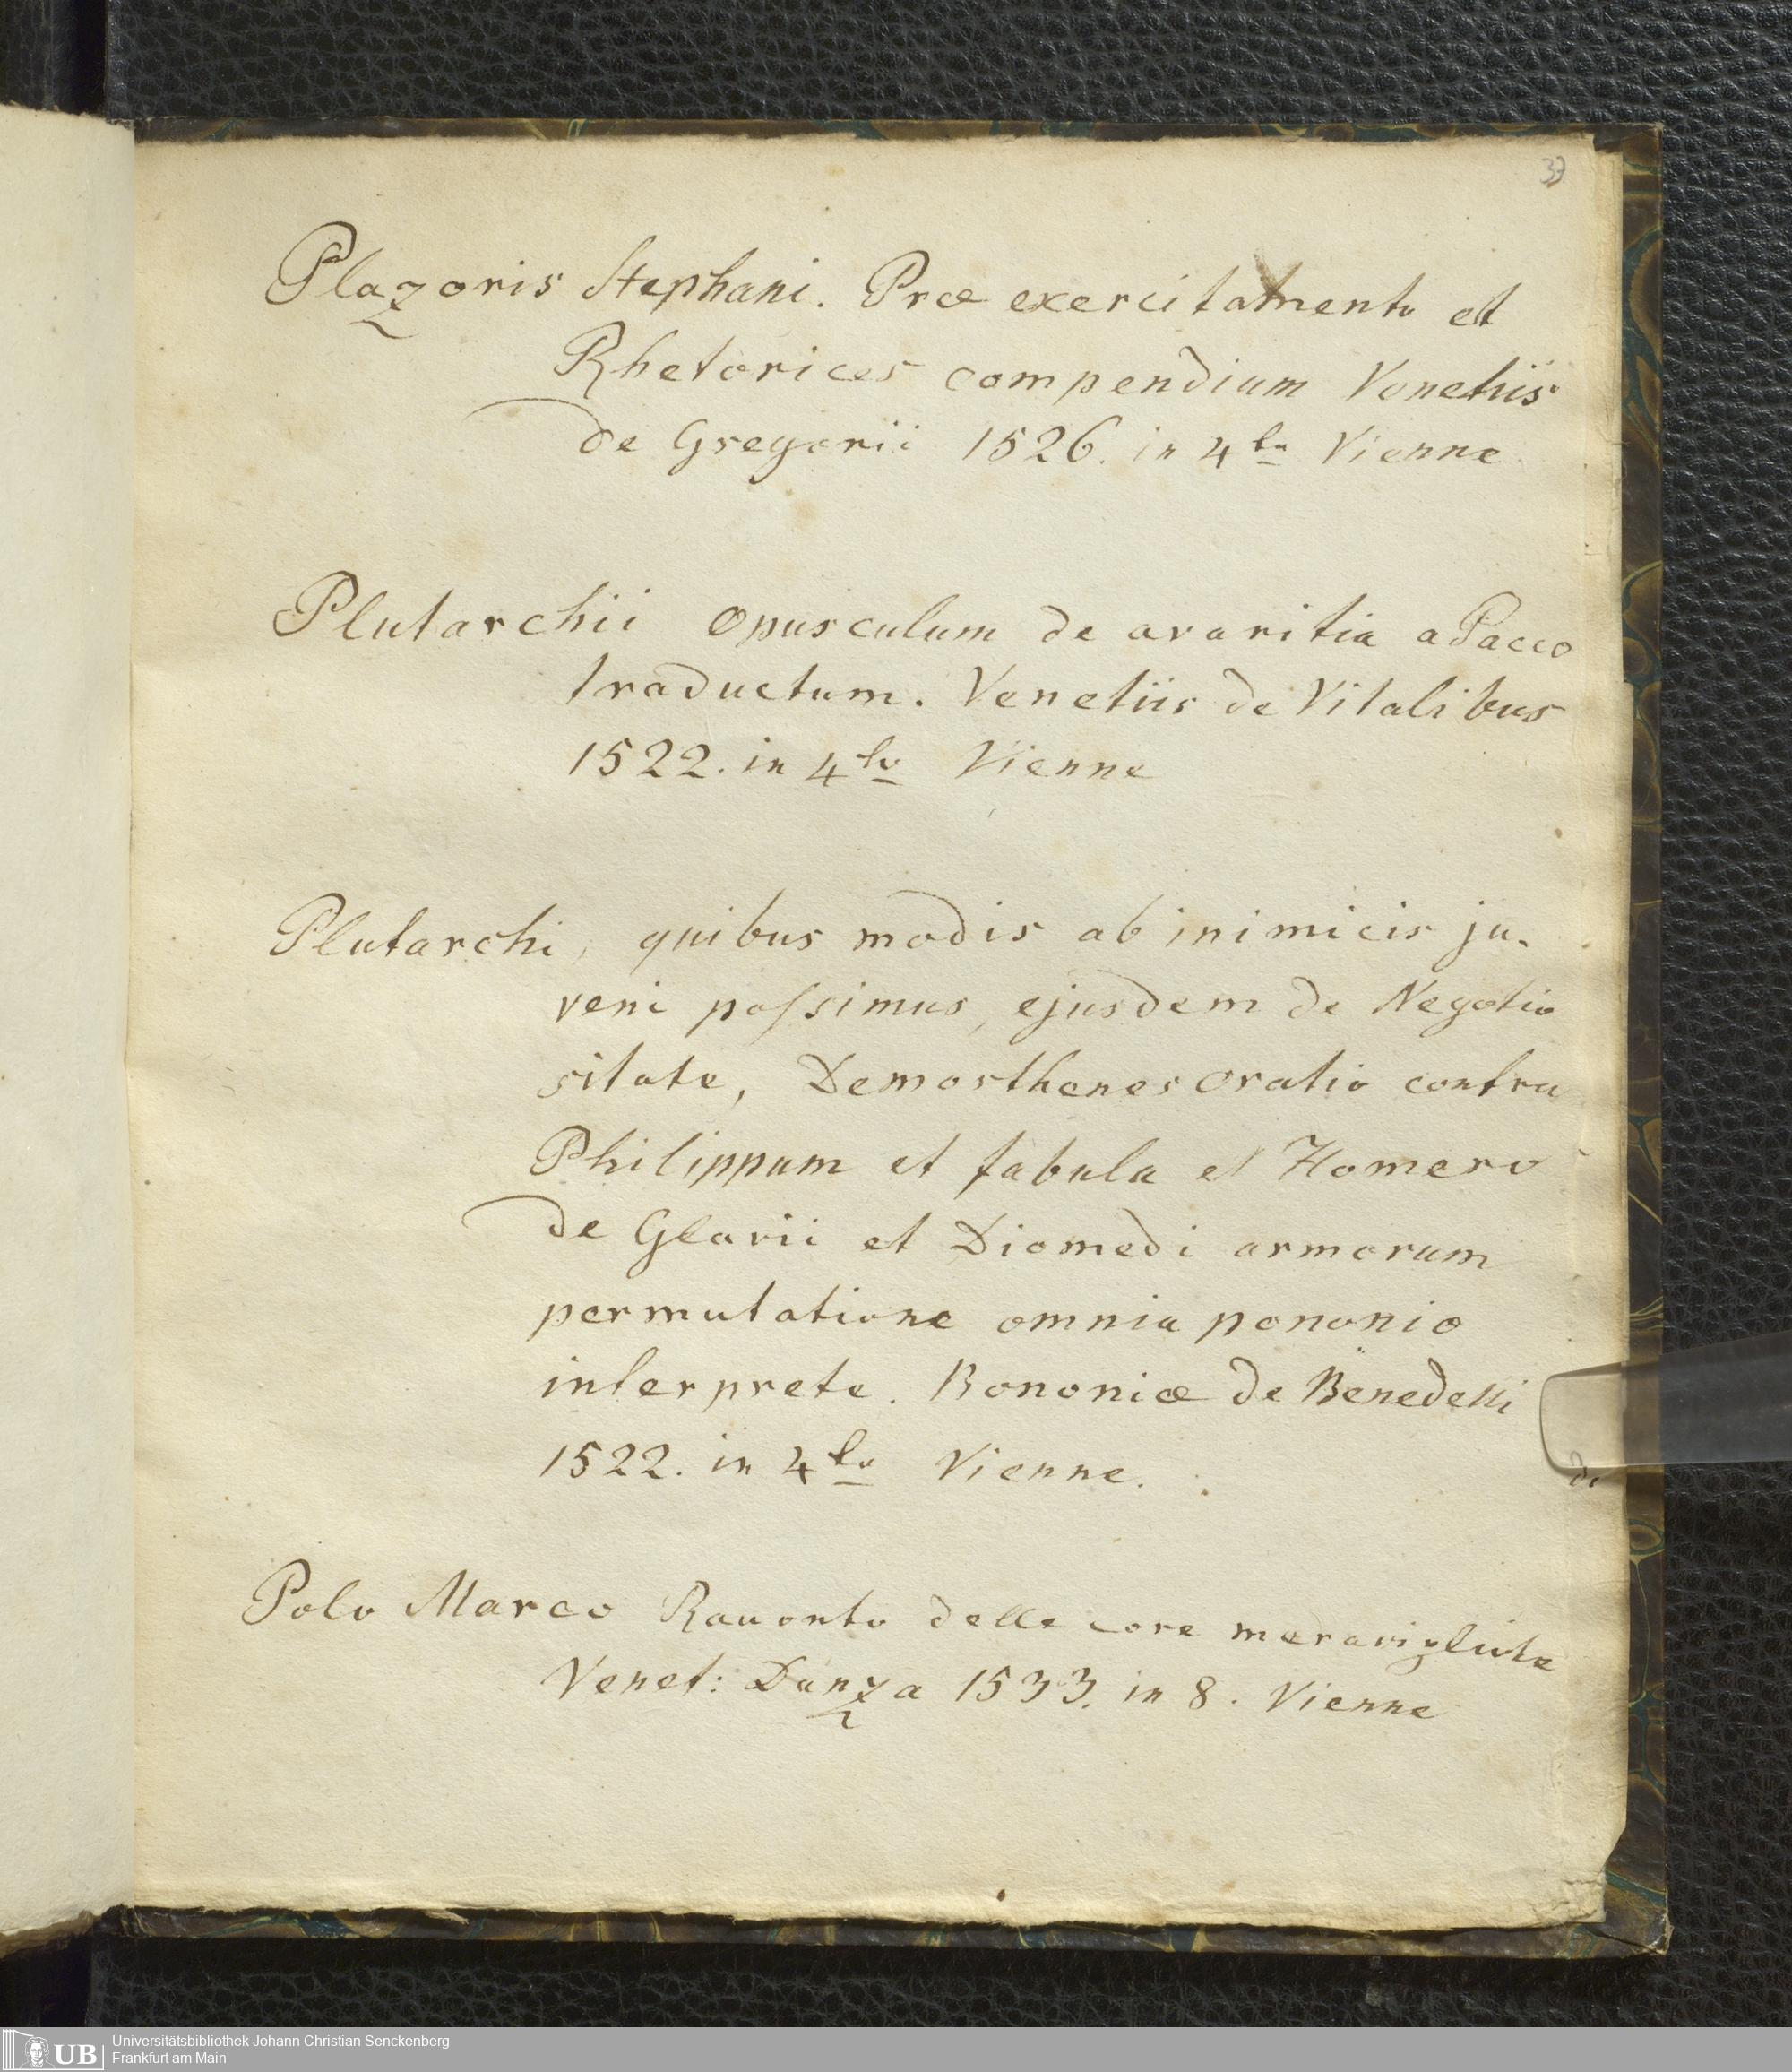 37
Plazonis Stephani. Præ exercitamento et
Rhetorices compendium Venetiis
de Gregorii 1526. in 4to Vienne
Plutarchii opusculum de avaritia a Pacco
traductum. Venetiis de Vitalibus
1522. in 4to Vienne
Plutarchi, quibus modis ab inimicis ju-
veni possimus, ejusdem de Negotio
sitate, Demosthenes oratio contra
Philippum et fabula et Homero
de Glavii et Diomedi armorum
permutatione omnia pononio
interprete. Bononiæ de Benedetti
1522. in 4to Vienne.
de
Polo Marco delle cose
Venet: Danza 1533. in 8. Vienne
UB Universitätsbibliothek Johann Christian Senckenberg
Frankfurt am Main